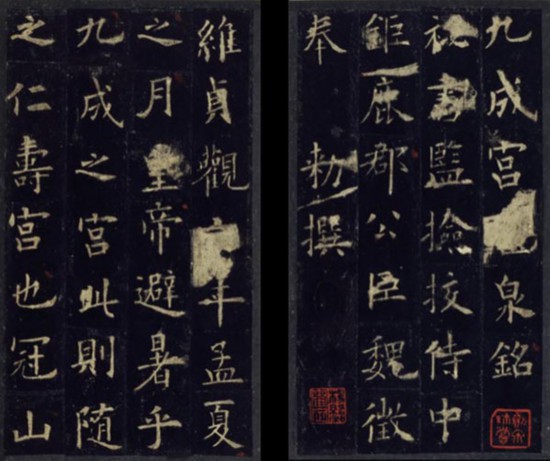 九成宮泉銘
秘書監撿挍侍中
鉅鹿郡公臣魏徵
奉 勑撰
維貞觀年孟夏
之月皇帝避暑乎
九成之宮此則随
之仁壽宮也冠山